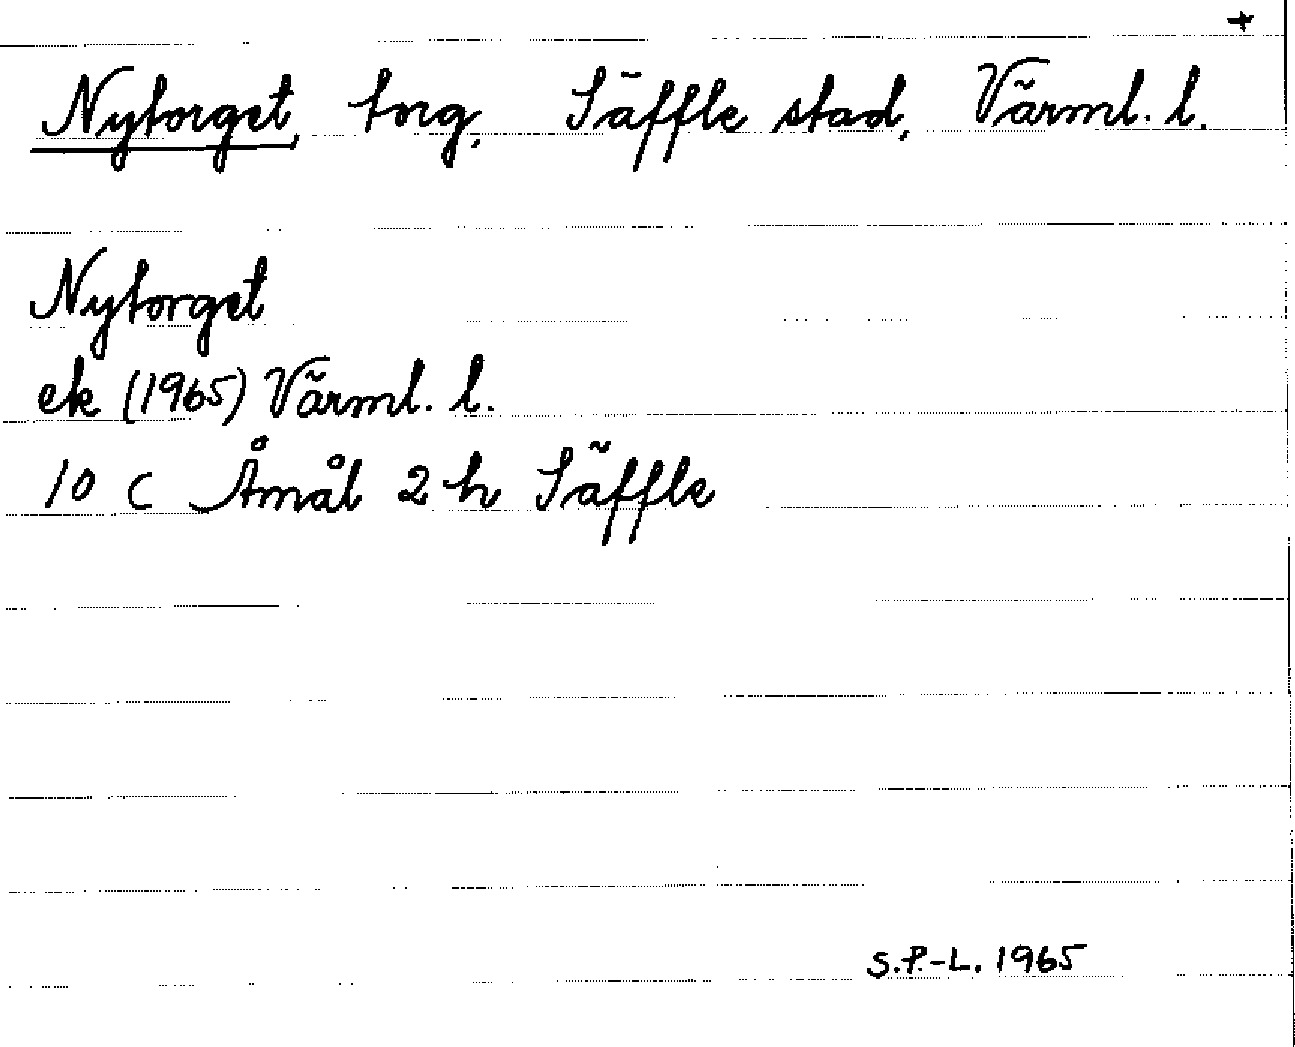 +
Nytorget, torg, Säffle stad, Värml. l.
Nytorget
ek (1965) Värml. l.
10 C Åmål 2 h Säffle
S.P.-L. 1965